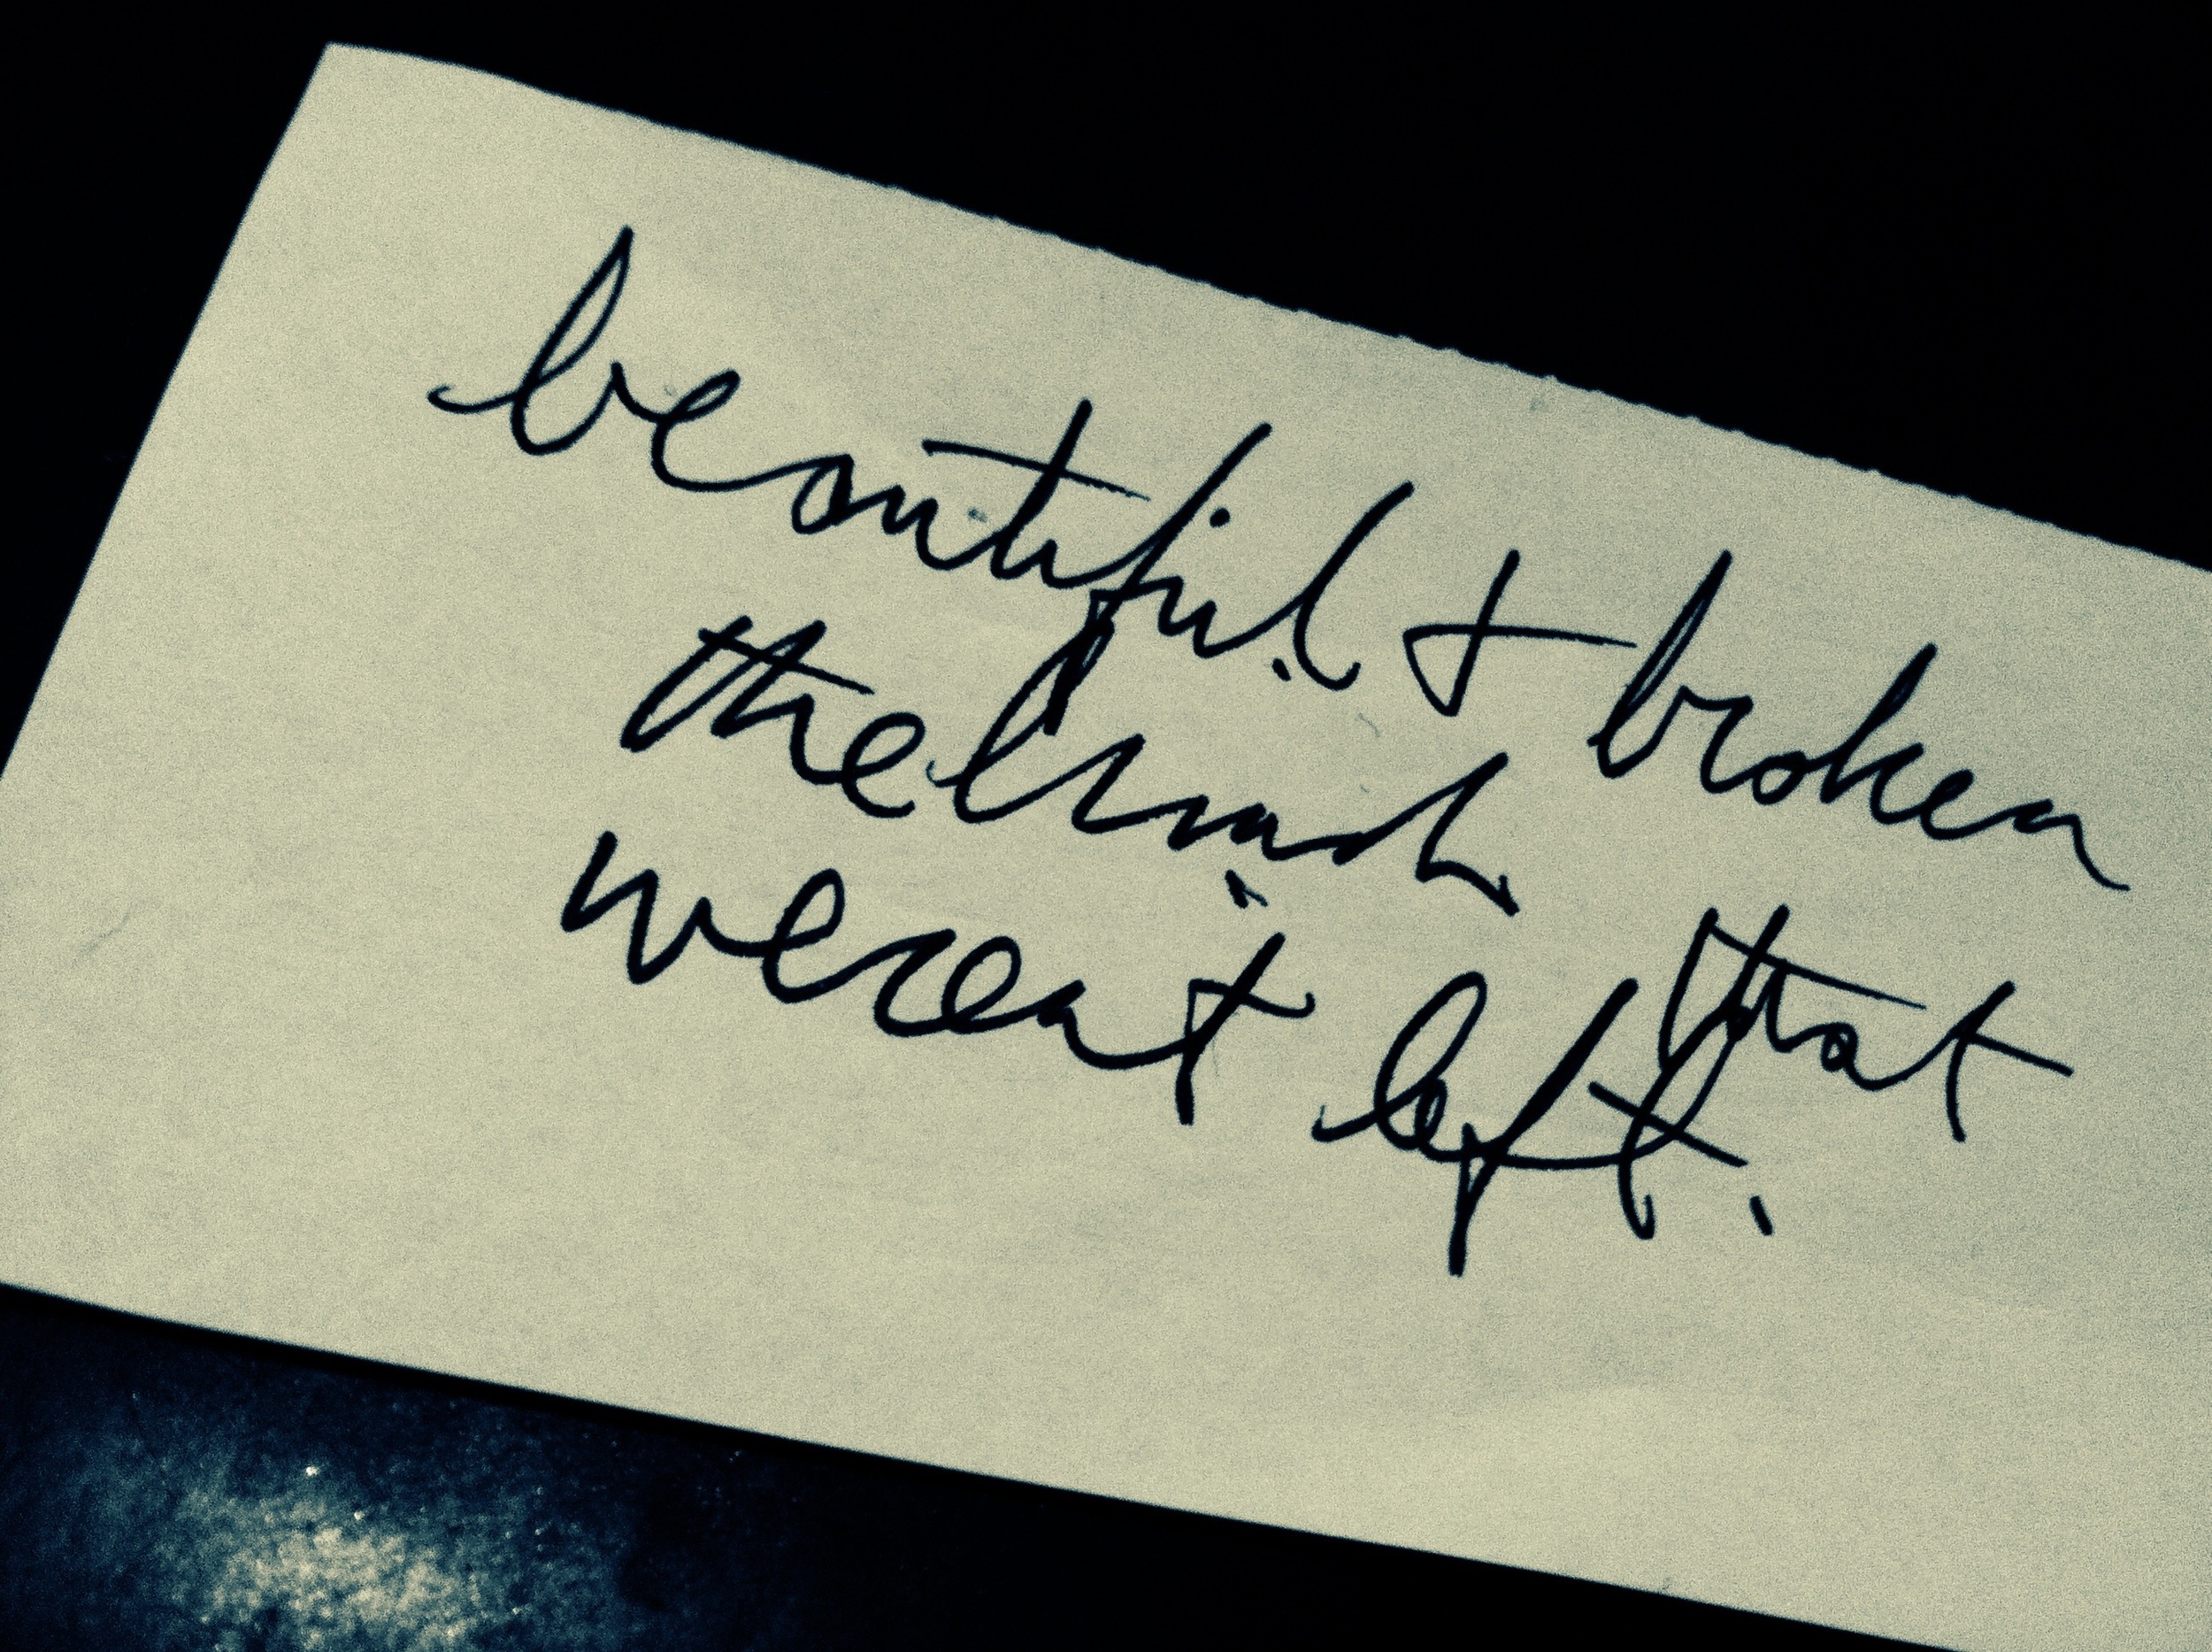 beautiful + broken
the that
weren't left.